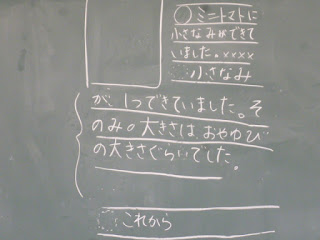 ○ミニトマトに
小さなみができて
いました。××××
小さなみ
が、1つできていました。そ
のみの大きさは、おやゆび
の大きさぐらいでした。
これから